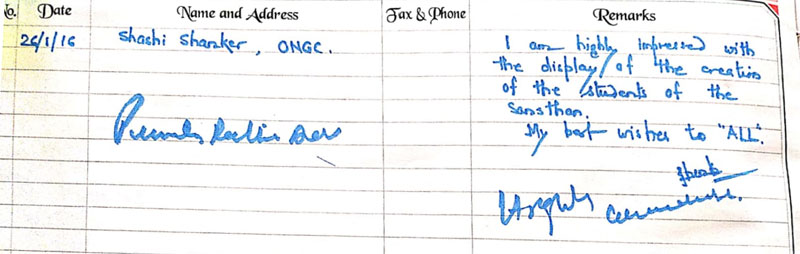 No. Date Name and Address Tax & Phone Remarks
26/1/16 Shashi Shanker, ONGC. I am highly impressed with
the display of the creation
of the students of the
Sansthan.
My best wishes to "ALL".
Highly